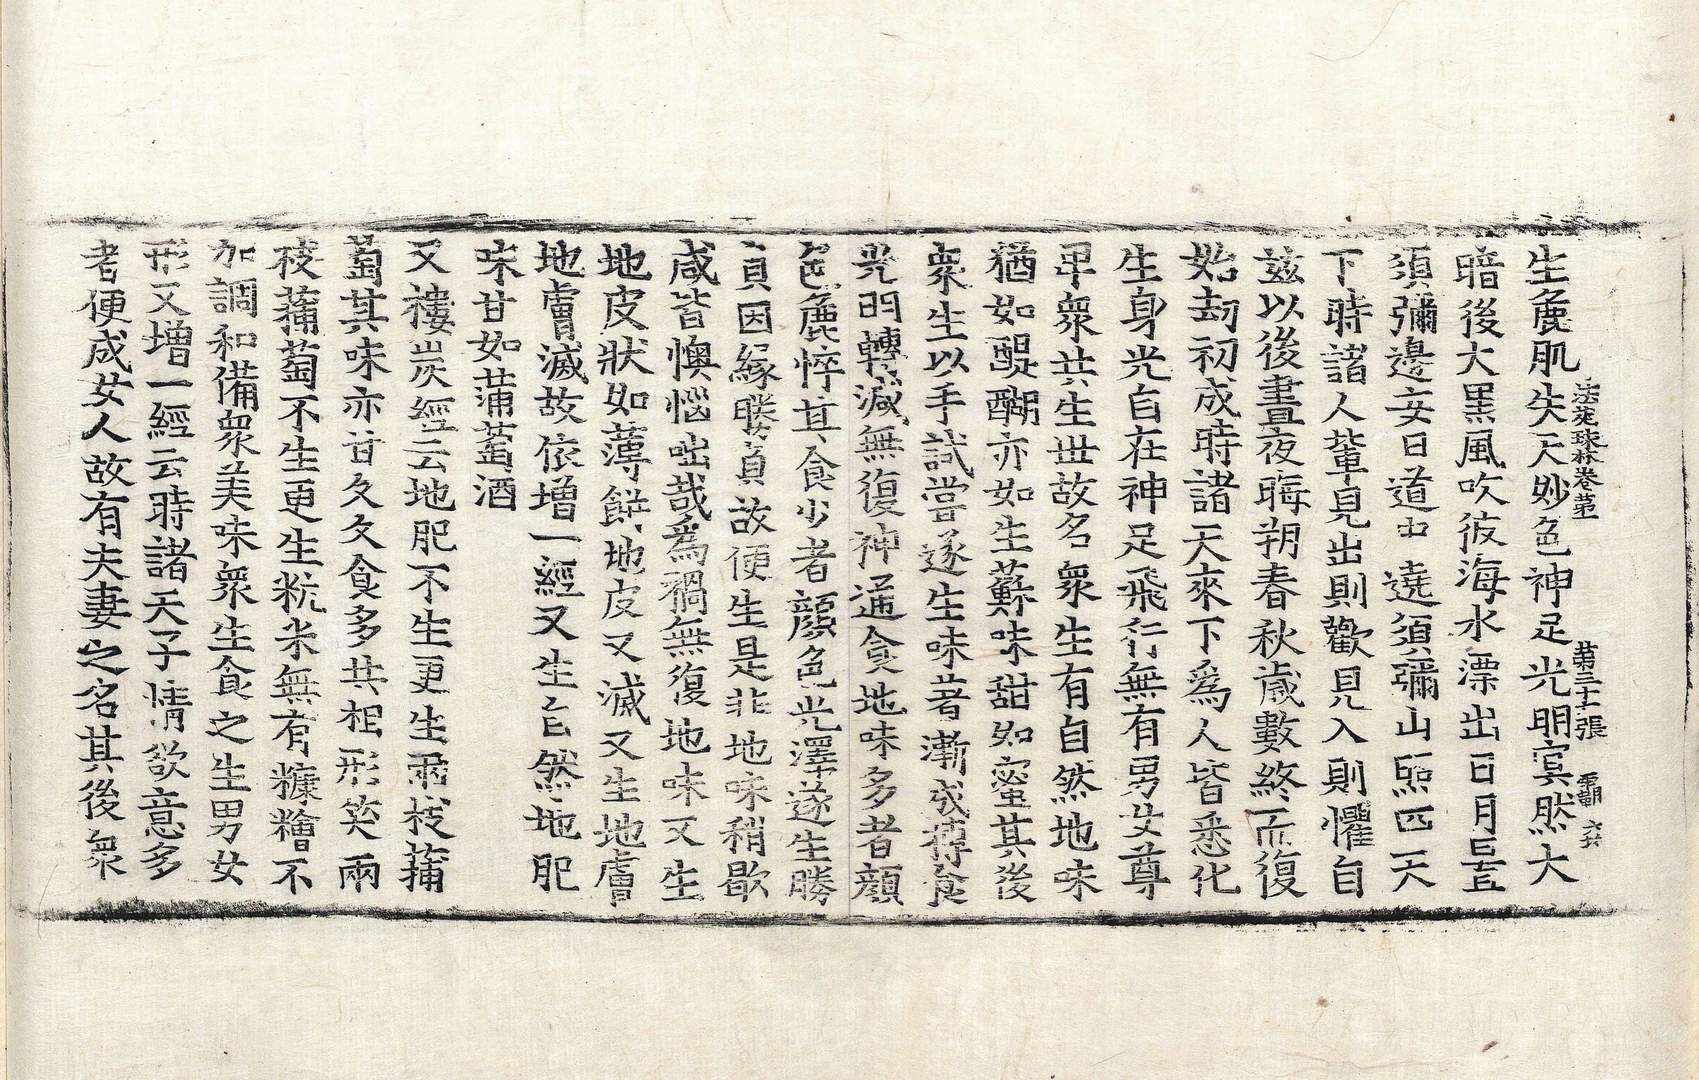 法苑珠林卷第一 第三十二張
生麁肌失天妙色神足光明冥然大
暗後大黒風吹彼海水漂出日月置
須彌邊安日道中遶須彌山照四天
下時諸人輩見出則歡見入則懼自
玆以後晝夜晦朔春秋歲數終而復
始劫初成時諸天來下爲人皆悉化
生身光自在神足飛行無有男女尊
卑衆共生世故名衆生有自然地味
猶如醍醐亦如生蘇味甜如蜜其後
衆生以手試甞遂生味著漸成摶食
光明轉滅無復神通食地味多者顔
色麁悴其食少者顔色光澤遂生勝
負因緣勝負故便生是非地味稍歇
咸皆懊惱咄哉爲禍無復地味又生
地皮狀如薄餅地皮又滅又生地膚
地膚滅故依增一經又生自然地肥
味甘如蒲萄酒
又樓炭經云地肥不生更生兩枝蒲
萄其味亦甘久久食多共相形笑兩
枝蒲萄不生更生粳米無有糠糩不
加調和備衆美味衆生食之生男女
形又增一經云時諸天子情欲意多
者便成女人故有夫妻之名其後衆